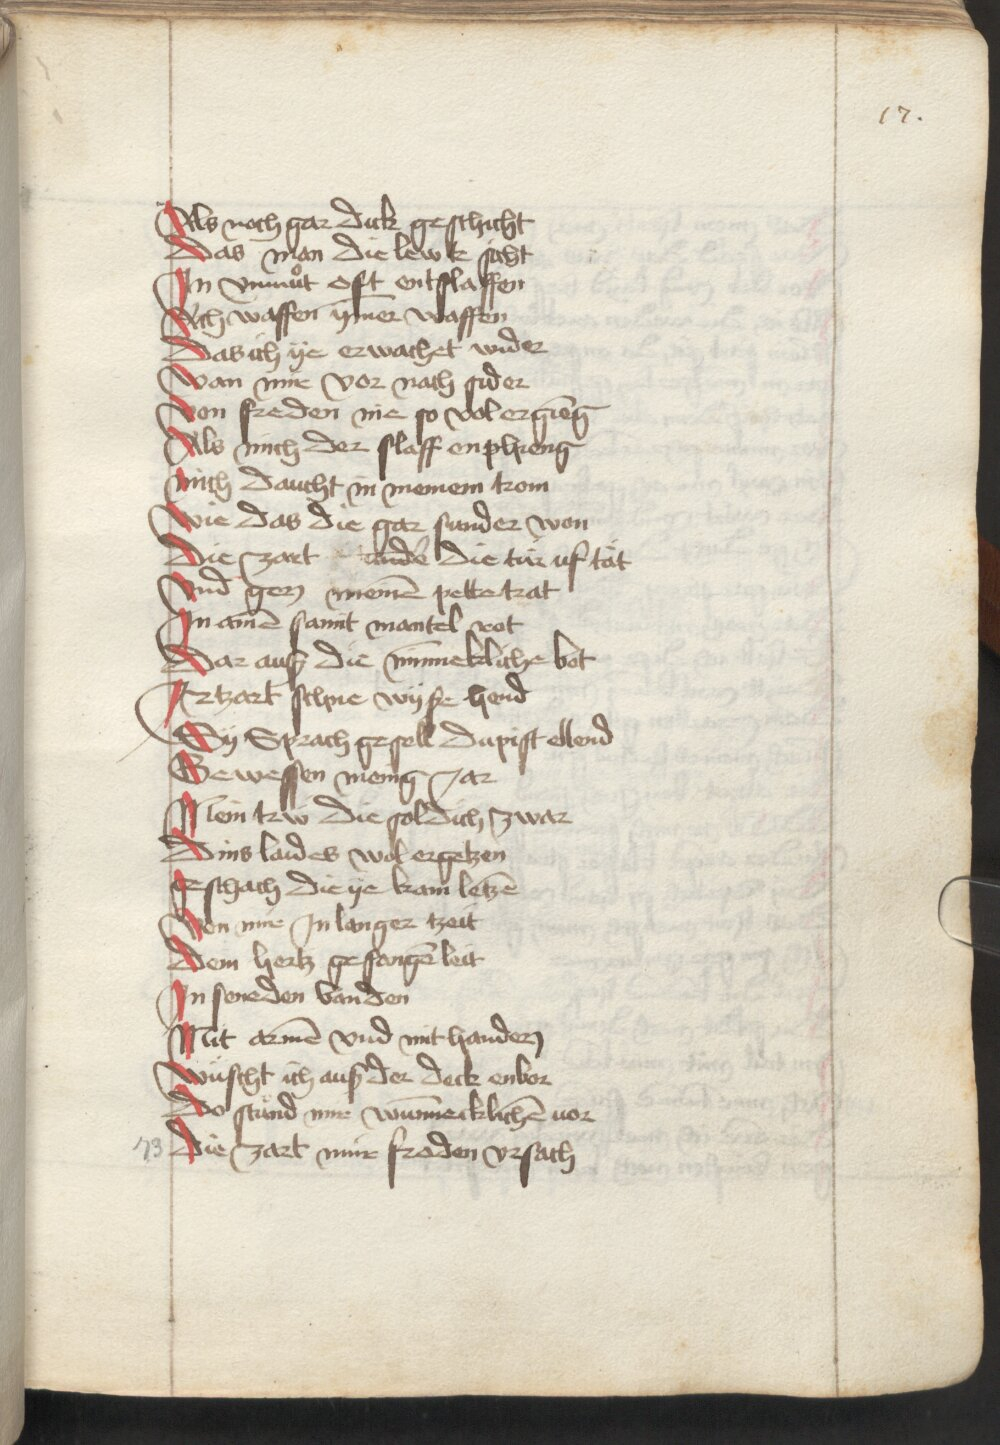 17.
Als noch gar dick geschicht
Das man die lewt sicht
In vnmuͦt oft entslaffen
Ach waffen ym̄er waffen
Das ich ye erwachet wider
Wan mir vor nach sider
Von freden nie so wol ergieng
Als mich der slaff enphieng
mich daucht in meinem trom
Wie das die gar sunder won
Die zart die tür uf tät
Vnd gen meinē pette trat
In ainē samit mantel rot
Dar auß die minnekliche bot
Ir zart schne wysse hend
Sy sprach gesell du pist ellend
Gewessen menig Jar
Mein trw die sol dich zwar
Dins laides wol ergetzen
geschach die ye kain letzē
Von mir In langer tzeit
Dein hertz gefangē leit
In seneden banden
Mit armē vnd mit handen
Wuscht ich auß der deck enbor
Do stuͦnd mir wunnecklichē vor
73 Die zart mine froden vrsach